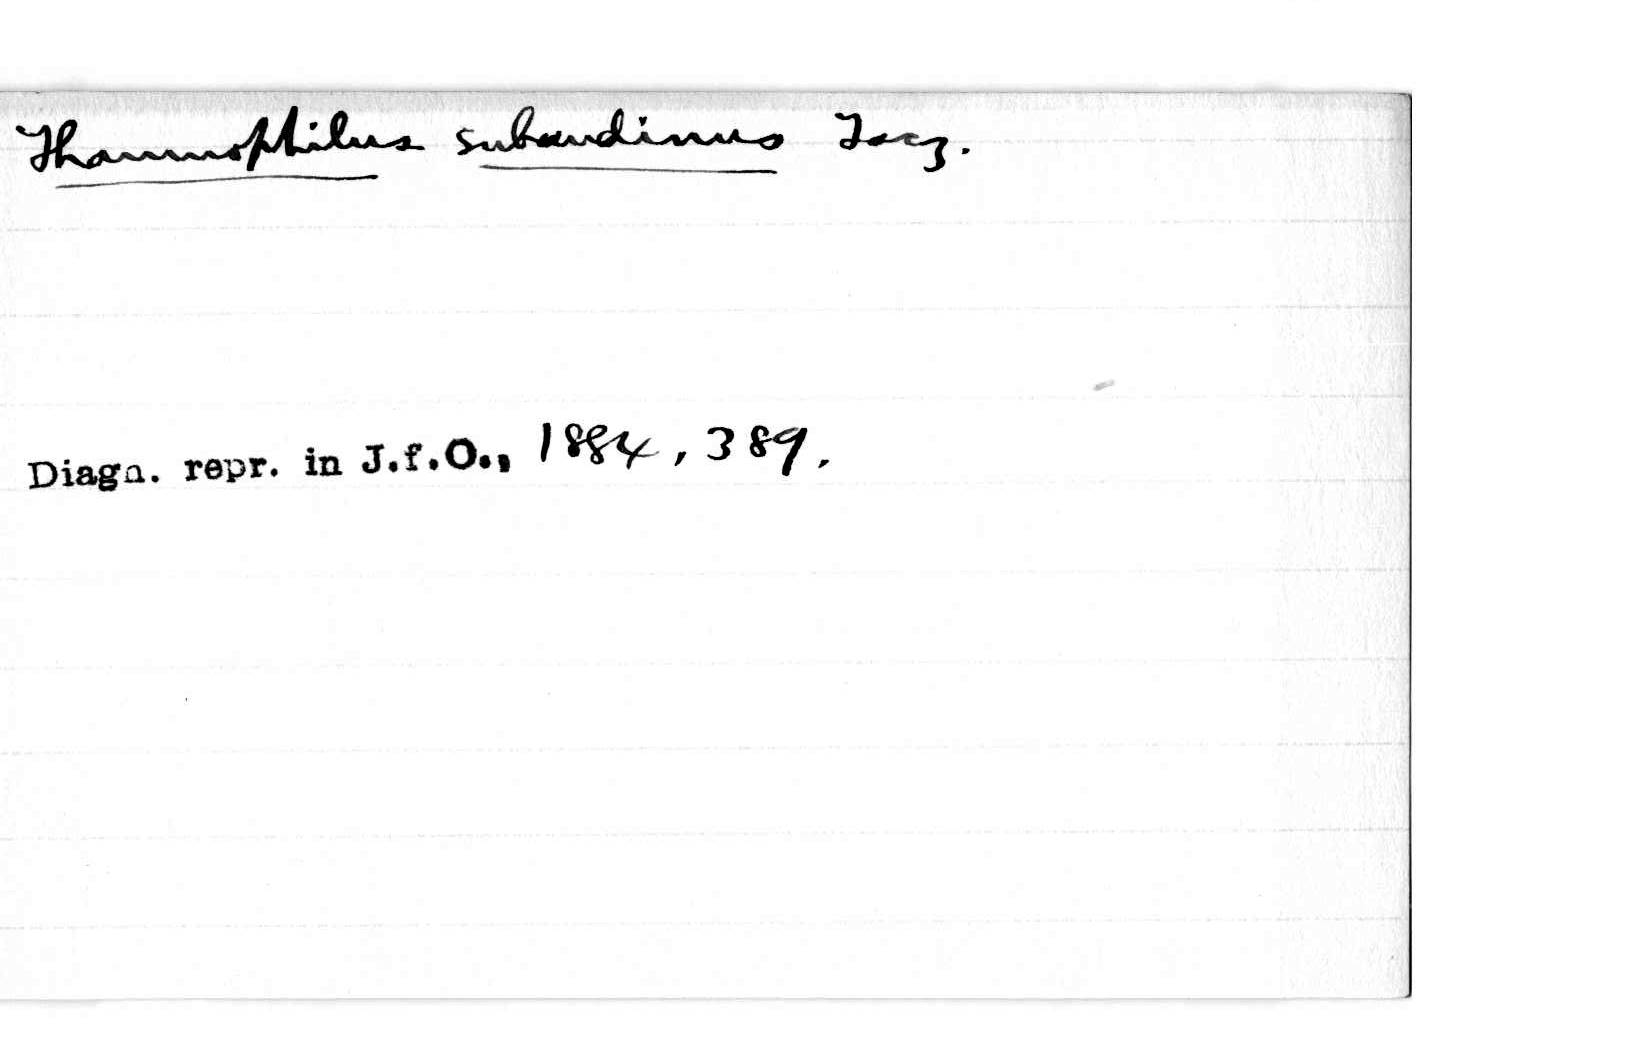 Thamnophilus subandinus Tacz.
Diagn. repr. in J.f.O., 1884, 389.